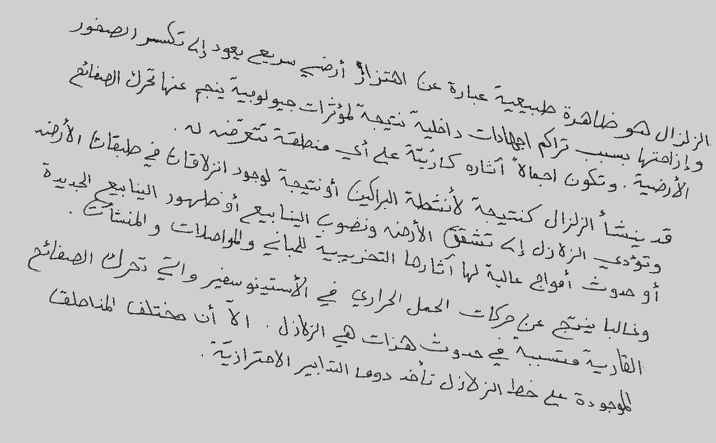 الزلزال هو ظاهرة طبيعية عبارة عن اهتزاز أرضي سريع يعود إلى تكسر الصخور
وإزاحتها بسبب تراكم اجهادات داخلية نتيجة لمؤثرات جيولوجية ينجم عنها تحرك الصفائح
الأرضية. وتكون اجمالاً آثاره كارثية على أي منطقة تتعرّض له.
قد ينشأ الزلزال كنتيجة لأنشطة البراكين أو نتيجة لوجود انزلاقات في طبقات الأرض
وتؤدي الزلازل إلى تشقق الأرض ونضوب الينابيع أو ظهور الينابيع الجديدة
أو حدوث أمواج عالية لها آثارها التخريبية للمباني والمواصلات والمنشآت.
وغالبا ينتج عن حركات الحمل الحراري في الأستينوسفير والتي تحرك الصفائح
القارية متسببة في حدوث هزات هي الزلازل. الاّ أن مختلف المناطق
الموجودة على خط الزلازل تأخذ دوما التدابير الاحترازيّة.